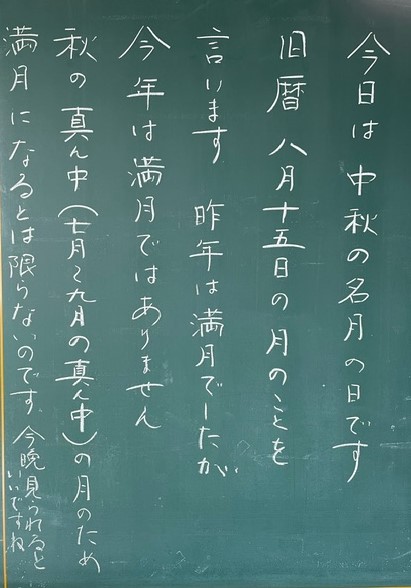 今日は中秋の名月の日です
旧暦八月十五日の月のことを
言います 昨年は満月でしたが
今年は満月ではありません
秋の真ん中(七月〜九月の真ん中)の月のため
満月になるとは限らないのです。今晩見られると
いいですね